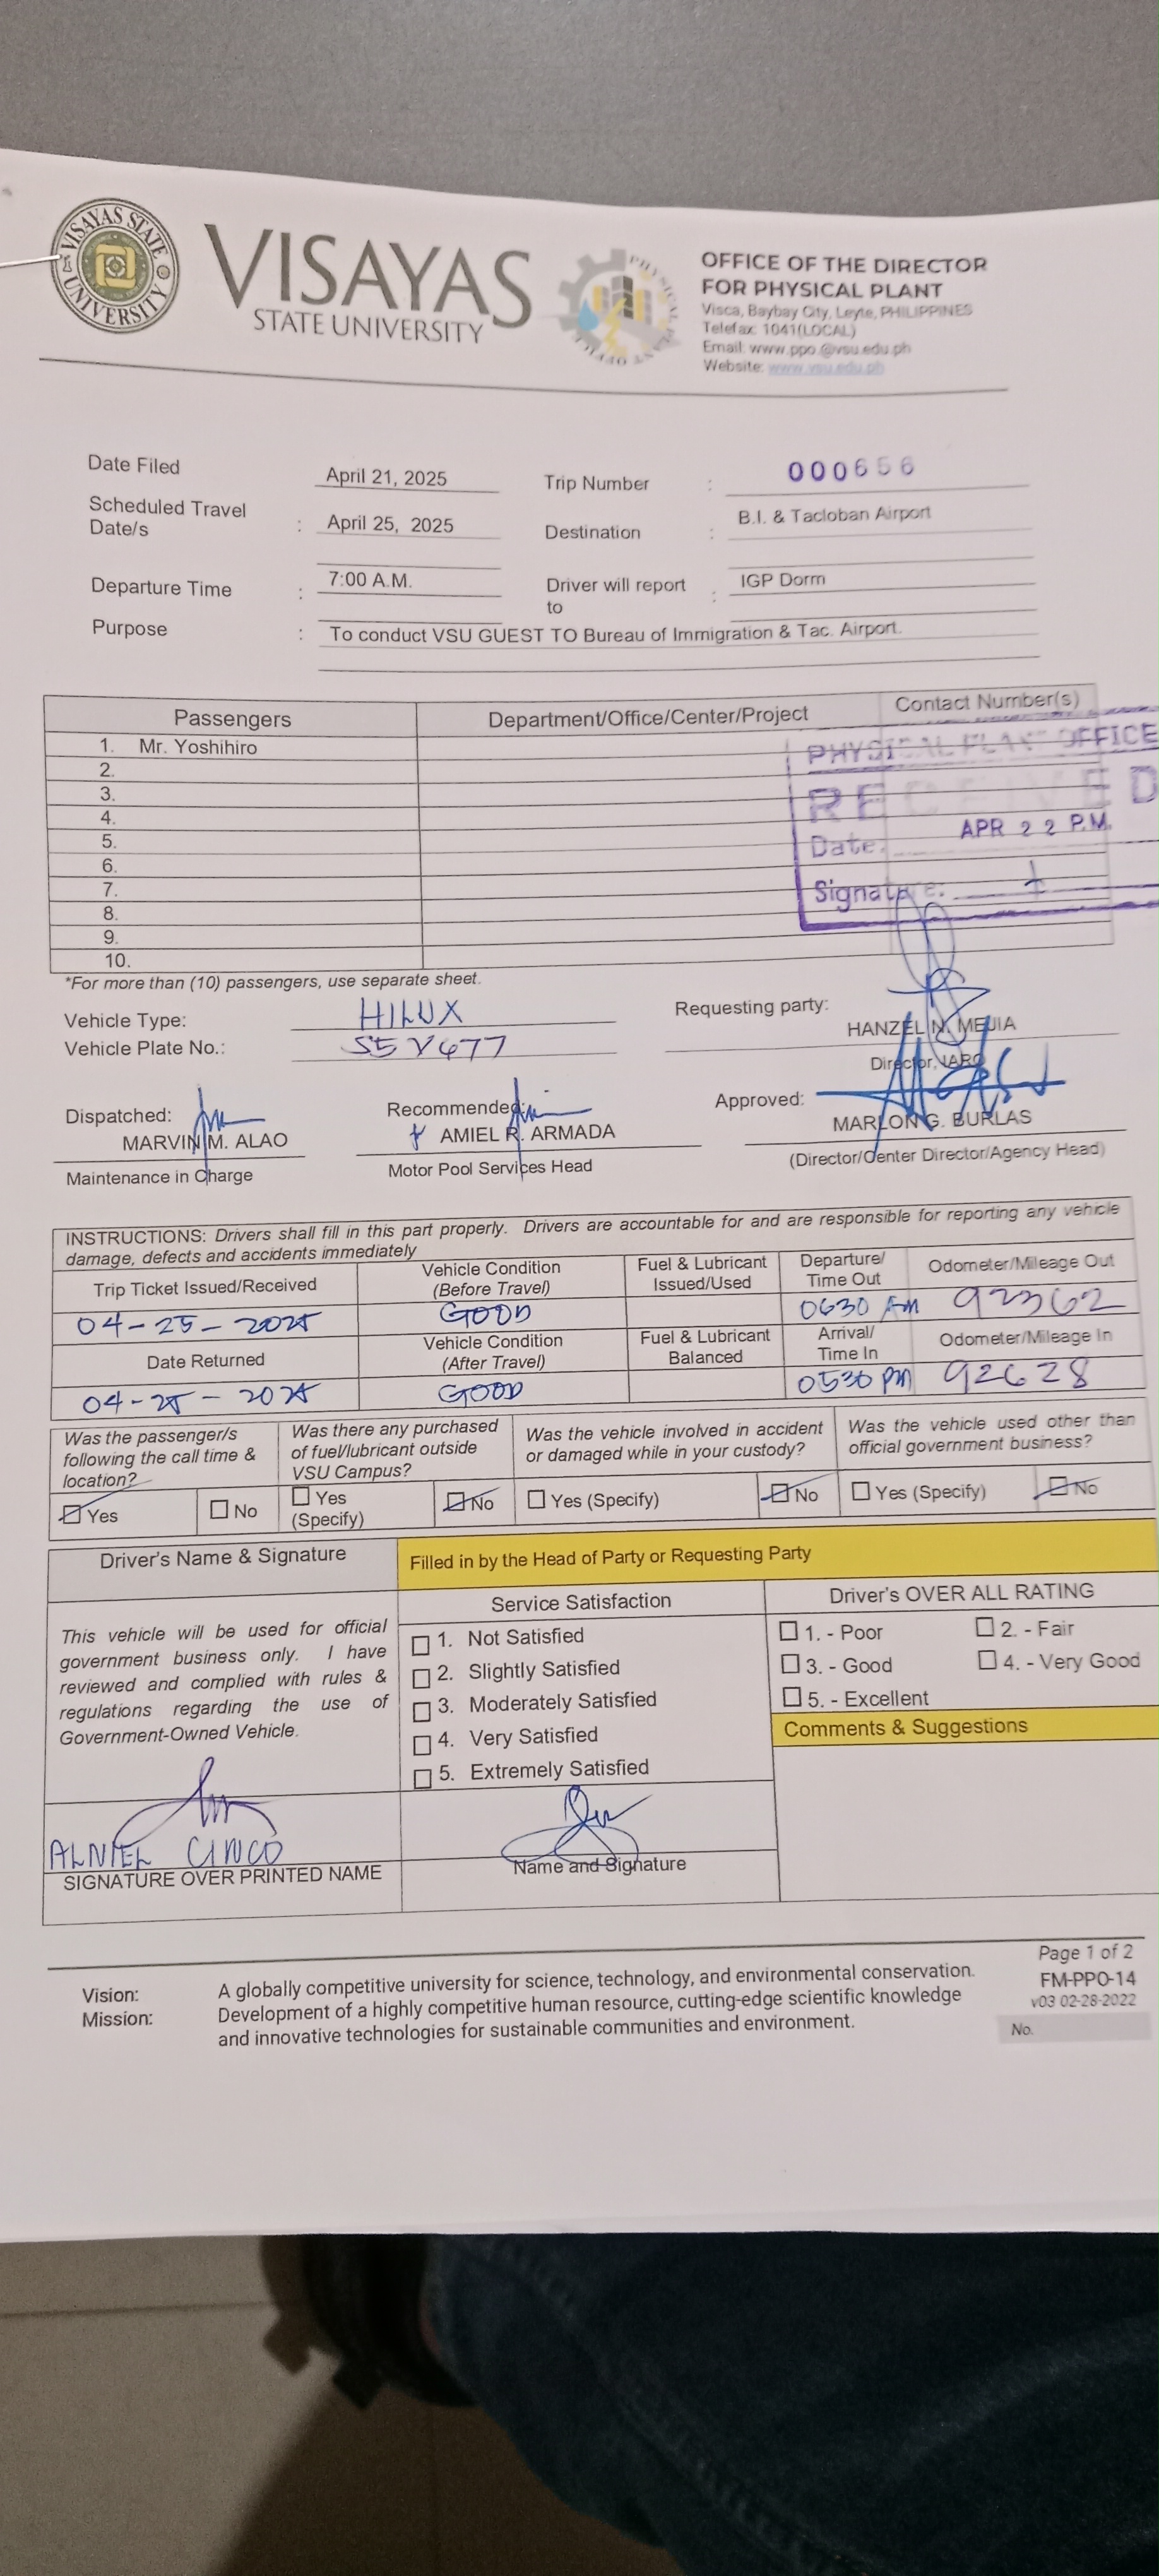 VISAYAS STATE UNIVERSITY
VISAYAS
STATE UNIVERSITY
OFFICE OF THE DIRECTOR
FOR PHYSICAL PLANT
Visca, Baybay City, Leyte, PHILIPPINES
Telefax: 1041(LOCAL)
Email: www.ppo.@vsu.edu.ph
Website: www.vsu.edu.ph
Date Filed April 21, 2025 Trip Number : 000656
Scheduled Travel Date/s : April 25, 2025 Destination : B.I. & Tacloban Airport
Departure Time : 7:00 A.M. Driver will report to : IGP Dorm
Purpose : To conduct VSU GUEST TO Bureau of Immigration & Tac. Airport.
Passengers Department/Office/Center/Project Contact Number(s)
1. Mr. Yoshihiro
2.
3.
4.
5.
6.
7.
8.
9.
10.
PHYSICAL PLANT OFFICE
RECEIVED
Date: APR 22 P.M.
Signature:
*For more than (10) passengers, use separate sheet.
Vehicle Type: HILUX
Vehicle Plate No.:
Requesting party:
HANZEL N. MEJIA
Director, IARO
Dispatched:
MARVIN M. ALAO
Maintenance in Charge
Recommended:
AMIEL R. ARMADA
Motor Pool Services Head
Approved:
MARLON G. BURLAS
(Director/Center Director/Agency Head)
INSTRUCTIONS: Drivers shall fill in this part properly. Drivers are accountable for and are responsible for reporting any vehicle
damage, defects and accidents immediately
Trip Ticket Issued/Received Vehicle Condition (Before Travel) Fuel & Lubricant Issued/Used Departure/ Time Out Odometer/Mileage Out
04-25-2025 GOOD 0630 AM 92362
Date Returned Vehicle Condition (After Travel) Fuel & Lubricant Balanced Arrival/ Time In Odometer/Mileage In
04-25-2025 GOOD 0530 PM 92628
Was the passenger/s following the call time & location?
Was there any purchased of fuel/lubricant outside VSU Campus?
Was the vehicle involved in accident or damaged while in your custody?
Was the vehicle used other than official government business?
Yes No Yes (Specify) No Yes (Specify) No Yes (Specify) No
Driver's Name & Signature
Filled in by the Head of Party or Requesting Party
This vehicle will be used for official
government business only. I have
reviewed and complied with rules &
regulations regarding the use of
Government-Owned Vehicle.
ALNIEL CINCO
SIGNATURE OVER PRINTED NAME
Service Satisfaction
1. Not Satisfied
2. Slightly Satisfied
3. Moderately Satisfied
4. Very Satisfied
5. Extremely Satisfied
Name and Signature
Driver's OVER ALL RATING
1. - Poor 2. - Fair
3. - Good 4. - Very Good
5. - Excellent
Comments & Suggestions
Vision: A globally competitive university for science, technology, and environmental conservation.
Mission: Development of a highly competitive human resource, cutting-edge scientific knowledge
and innovative technologies for sustainable communities and environment.
Page 1 of 2
FM-PPO-14
v03 02-28-2022
No.